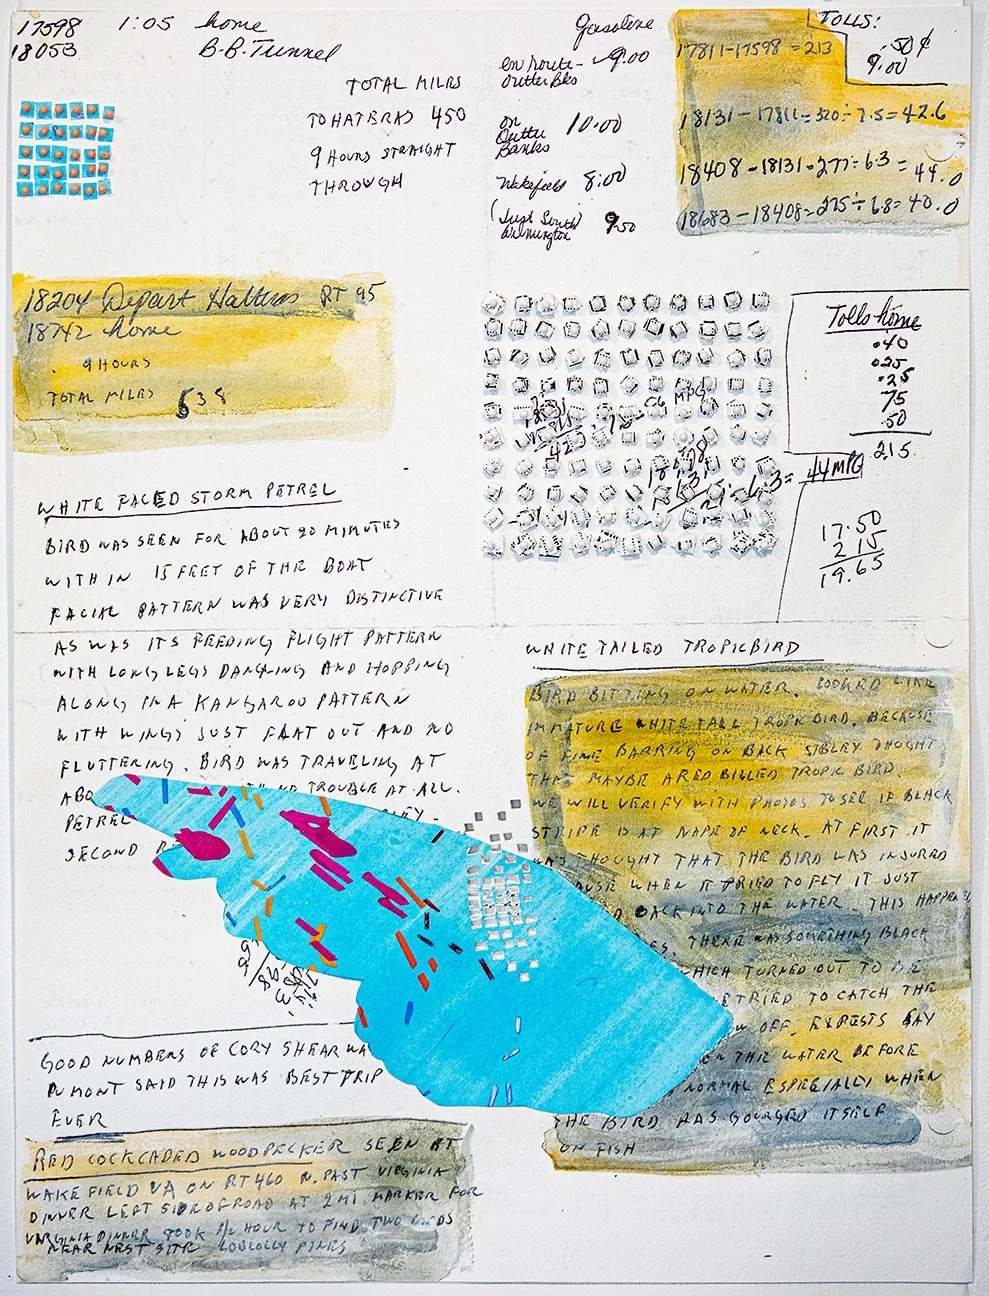 17598 1:05 home
18053 B-B-Tunnel
TOTAL MILES
TO HATERAS 450
9 HOURS STRAIGHT
THROUGH
Gasoline
en route - 9.00
Outter Bks
on 10.00
Outter
Banks
Wakefield 8:00
(Just South) 9.50
TOLLS:
.50¢
9.00
17811-17598 = 213
18131-17811=320÷7.5=42.6
18408-18131=277÷6.3=44.0
18683-18408=275÷6.8=40.0
18204 Depart Hatteras RT 95
18742 home
9 HOURS
TOTAL MILES 538
Tolls home
.40
.25
.25
75
.50
2.15
MPG
6.3= 44MPG
17.50
2 15
19.65
WHITE FACED STORM PETREL
BIRD WAS SEEN FOR ABOUT 20 MINUTES
WITH IN 15 FEET OF THE BOAT
FACIAL PATTERN WAS VERY DISTINCTIVE
AS WAS ITS FEEDING FLIGHT PATTERN
WITH LONG LEGS DANGLING AND HOPPING
ALONG IN A KANGAROO PATTERN
WITH WINGS JUST FLAT OUT AND NO
FLUTTERING. BIRD WAS TRAVELING AT
ABO NO TROUBLE AT ALL.
PETREL
SECOND R
GOOD NUMBERS OF CORY SHEAR WA
DUMONT SAID THIS WAS BEST TRIP
EVER
RED COCKCADED WOODPECKER SEEN AT
WAKE FIELD VA ON RT 460 N. PAST VIRGINIA
DINNER LEFT SIDE OF ROAD AT 2 MI MARKER FOR
VIRGINIA DINNER TOOK 1/2 HOUR TO FIND TWO BIRDS
NEAR NEST SITE LOBLOLLY PINES
WHITE TAILED TROPICBIRD
BIRD SITTING ON WATER. LOOKED LIKE
IMMATURE WHITE TAIL TROPIC BIRD. BECAUSE
OF FINE BARRING ON BACK SIBLEY THOUGHT
THAT MAYBE A RED BILLED TROPIC BIRD.
WE WILL VERIFY WITH PHOTOS TO SEE IF BLACK
STRIPE IS AT NAPE OF NECK. AT FIRST IT
WAS THOUGHT THAT THE BIRD WAS INJURED
AUSE WHEN IT TRIED TO FLY IT JUST
D BACK INTO THE WATER. THIS HAPPENED
ES. THERE WAS SOMETHING BLACK
HICH TURNED OUT TO BE
E TRIED TO CATCH THE
W OFF. EXPERTS SAY
ON THE WATER BEFORE
NORMAL ESPECIALLY WHEN
THE BIRD HAS GOURGED ITSELF
ON FISH